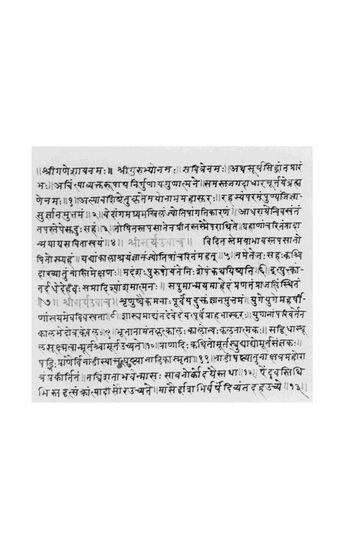 ॥श्रीगणेशायनमः॥ श्रीगुरुभ्योनमः॥ सवित्रेनमः॥ अथसूर्यसिद्धांतप्रारं
भः॥ अचिंत्याव्यक्तरूपायनिर्गुणायगुणात्मने॥ समस्तजगदाधारमूर्तयेब्रह्म
णेनमः॥१॥ अल्पावशिष्टेतुकृतेमयोनाममहासुरः॥ रहस्यंपरमंपुण्यंजिज्ञा
सुर्ज्ञानमुत्तमं॥२॥ वेदांगमग्र्यमखिलंज्योतिषांगतिकारणं॥ आराधयन्विवस्वंतं
तपस्तेपेसुदुःसहं॥३॥ तोषितस्तपसातेनप्रीतस्तस्मैवरार्थिने॥ ग्रहाणांचरितंप्रादा
न्मयायसवितास्वयं॥४॥ श्रीसूर्यउवाच॥ विदितस्तेमयाभावस्तपसातो
षितोस्म्यहं॥ दद्यांकालाश्रयंज्ञानंज्योतिषांचरितंमहत्॥५॥ नमेतेजःसहःकश्चि
दाख्यातुंनास्तिमेक्षणः॥ मदंशःपुरुषोयंतेनिःशेषंकथयिष्यति॥६॥ इत्युक्त्वांत
र्दधेदेवःसमादिश्यांशमात्मनः॥ सपुमान्मयमाहेदंप्रणतंप्रांजलिंस्थितं
॥७॥ श्रीसूर्यउवाच॥ शृणुष्वैकमनाःपूर्वंयदुक्तंज्ञानमुत्तमं॥ युगेयुगेमहर्षी
णांस्वयमेवविवस्वता॥८॥ शास्त्रमाद्यंतदेवेदंयत्पूर्वंप्राहभास्करः॥ युगानांपरिवर्तेन
कालभेदोत्रकेवलः॥९॥ भूतानामंतकृत्कालःकालोन्यःकलनात्मकः॥ सद्विधास्थू
लसूक्ष्मत्वान्मूर्तश्चामूर्तउच्यते॥१०॥ प्राणादिःकथितोमूर्तस्त्रुट्याद्योमूर्तसंज्ञकः॥
षड्भिःप्राणैर्विनाडीस्यात्तत्षष्ट्यानाडिकास्मृता॥११॥ नाडीषष्ट्यातुनाक्षत्रमहोरा
त्रंप्रकीर्तितं॥ तत्रिंशताभवेन्मासःसावनोर्कोदयैस्तथा॥१२॥ ऐंदवस्तिथि
भिस्तद्वत्संक्रांत्यासौरउच्यते॥ मासैर्द्वादशभिर्वर्षंदिव्यंतदहउच्यते॥१३॥